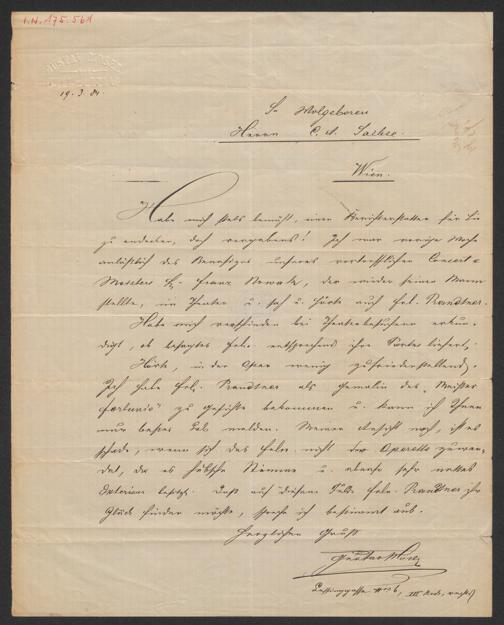 I.N. 175.561
GUSTAV
19. 3. 84.
Sr. Wolgeboren
Herrn C. A. Sachse.
Wien.
Habe mich stets bemüht, einen Berichterstatter für Sie
zu entdecken, doch vergebens! Ich war vorige Woche
anläßlich des Benefizes unseres vortrefflichen Concert-
Meisters H. Franz Nowak, der wieder seinen Mann
stellte, im Theater u. sah u. hörte auch Frl. Randtner.
Habe mich verschieden bei Theaterbesuchern erkun-
digt, ob besagtes Frln. entsprechend ihre Parte liefert,
Hörte, in der Oper wenig zufriedenstellend.
Ich habe Frl. Randtner als Gemalin des "Meister
Fortunio" zu Gesichte bekommen u. kann ich Ihnen
nur bestes Lob melden. Meiner Ansicht nach, ist es
schade, wenn sich das Frln. nicht der Operette zuwen-
det, da es hübsche Stimme u. ebenso sehr nettes
Exterieur besitzt. Daß auf diesem Felde Frln. Randtner ihr
Glück finden möchte, spreche ich bestimmt aus.
Herzlichen Gruß
Gustav
Lessinggasse 6, III. Stock, rechts